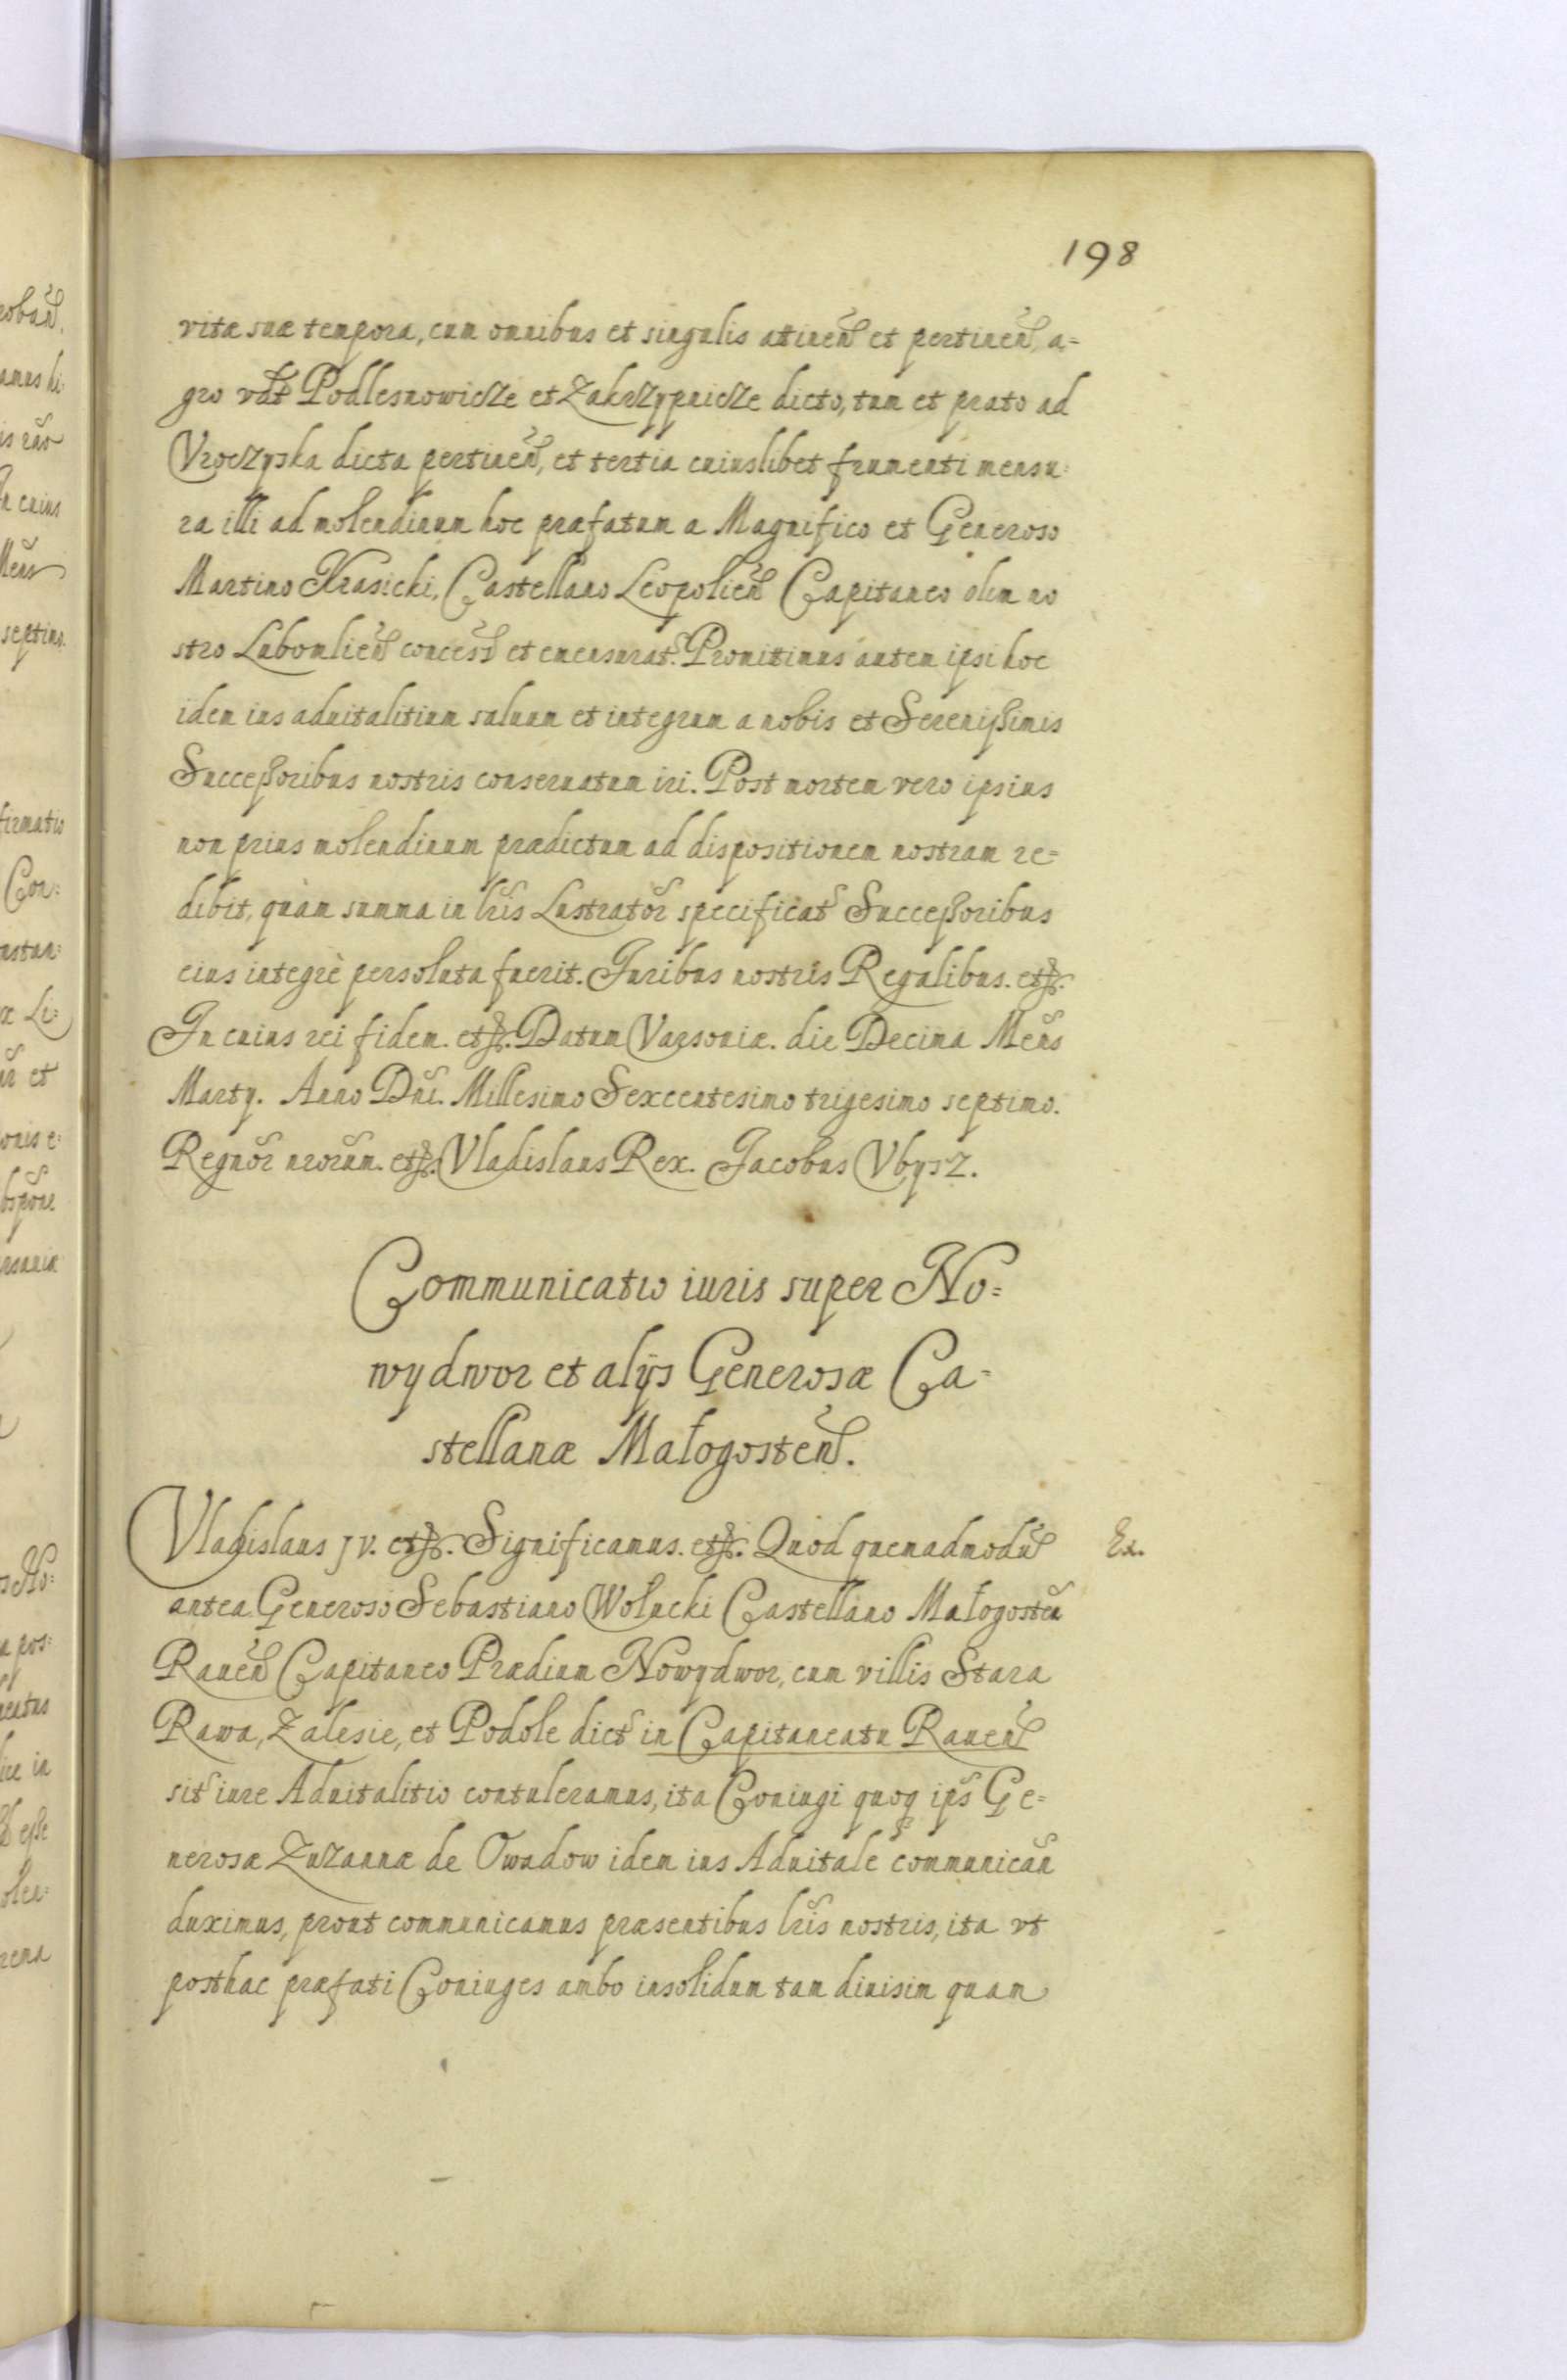 198
vitæ suæ tempora, cum omnibus et singulis atinen̄ et pertinen̄, a=
gro vdt Podlesnowicze et Zakrzypnicze dicto, tum et prato ad
Vroczyska dicta pertinen̄, et tertia cuiuslibet frumenti mensu=
ra illi ad molendinum hoc præfatum a Magnifico et Generoso
Martino Krasicki, Castellano Leopolien̄ Capitaneo olim no
stro Lubomlien̄ concess̄ et emensurat̄. Promitimus autem ipsi hoc
idem ius aduitalitium saluum et integrum a nobis et Serenißimis
Succeßoribus nostris conseruatum iri. Post mortem vero ipsius
non prius molendinum prædictum ad dispositionem nostram re=
dibit, quàm summa in lr̄is Lustrator̄ specificat̄ Succeßoribus
eius integrè persoluta fuerit. Juribus nostris Regalibus. etc.
In cuius rei fidem. etc. Datum Varsouiæ. die Decima Men̄s
Martij. Anno Dn̄i. Millesimo Sexcentesimo trigesimo septimo.
Regnor̄ nrorum. etc. Vladislaus Rex. Jacobus Vbysz.
Communicatio iuris super No=
wydwor et alijs Generosæ Ca=
stellanæ Małogosten̄.
Vladislaus IV. etc. Significamus. etc. Quod quemadmodū
Ex.
antea Generoso Sebastiano Wołucki Castellano Małogosten̄
Rauen̄ Capitaneo Prædium Nowydwor, cum villis Stara
Rawa, Zalesie, et Podole dict̄ in Capitaneatu Rauen̄
sit̄ iure Aduitalitio contuleramus, ita Coniugi quoq ips̄ Ge=
nerosæ Zuzannæ de Owadow idem ius Aduitale communican̄
duximus, prout communicamus præsentibus lr̄is nostris, ita vt
posthac præfati Coniuges ambo insolidum tam diuisim quam